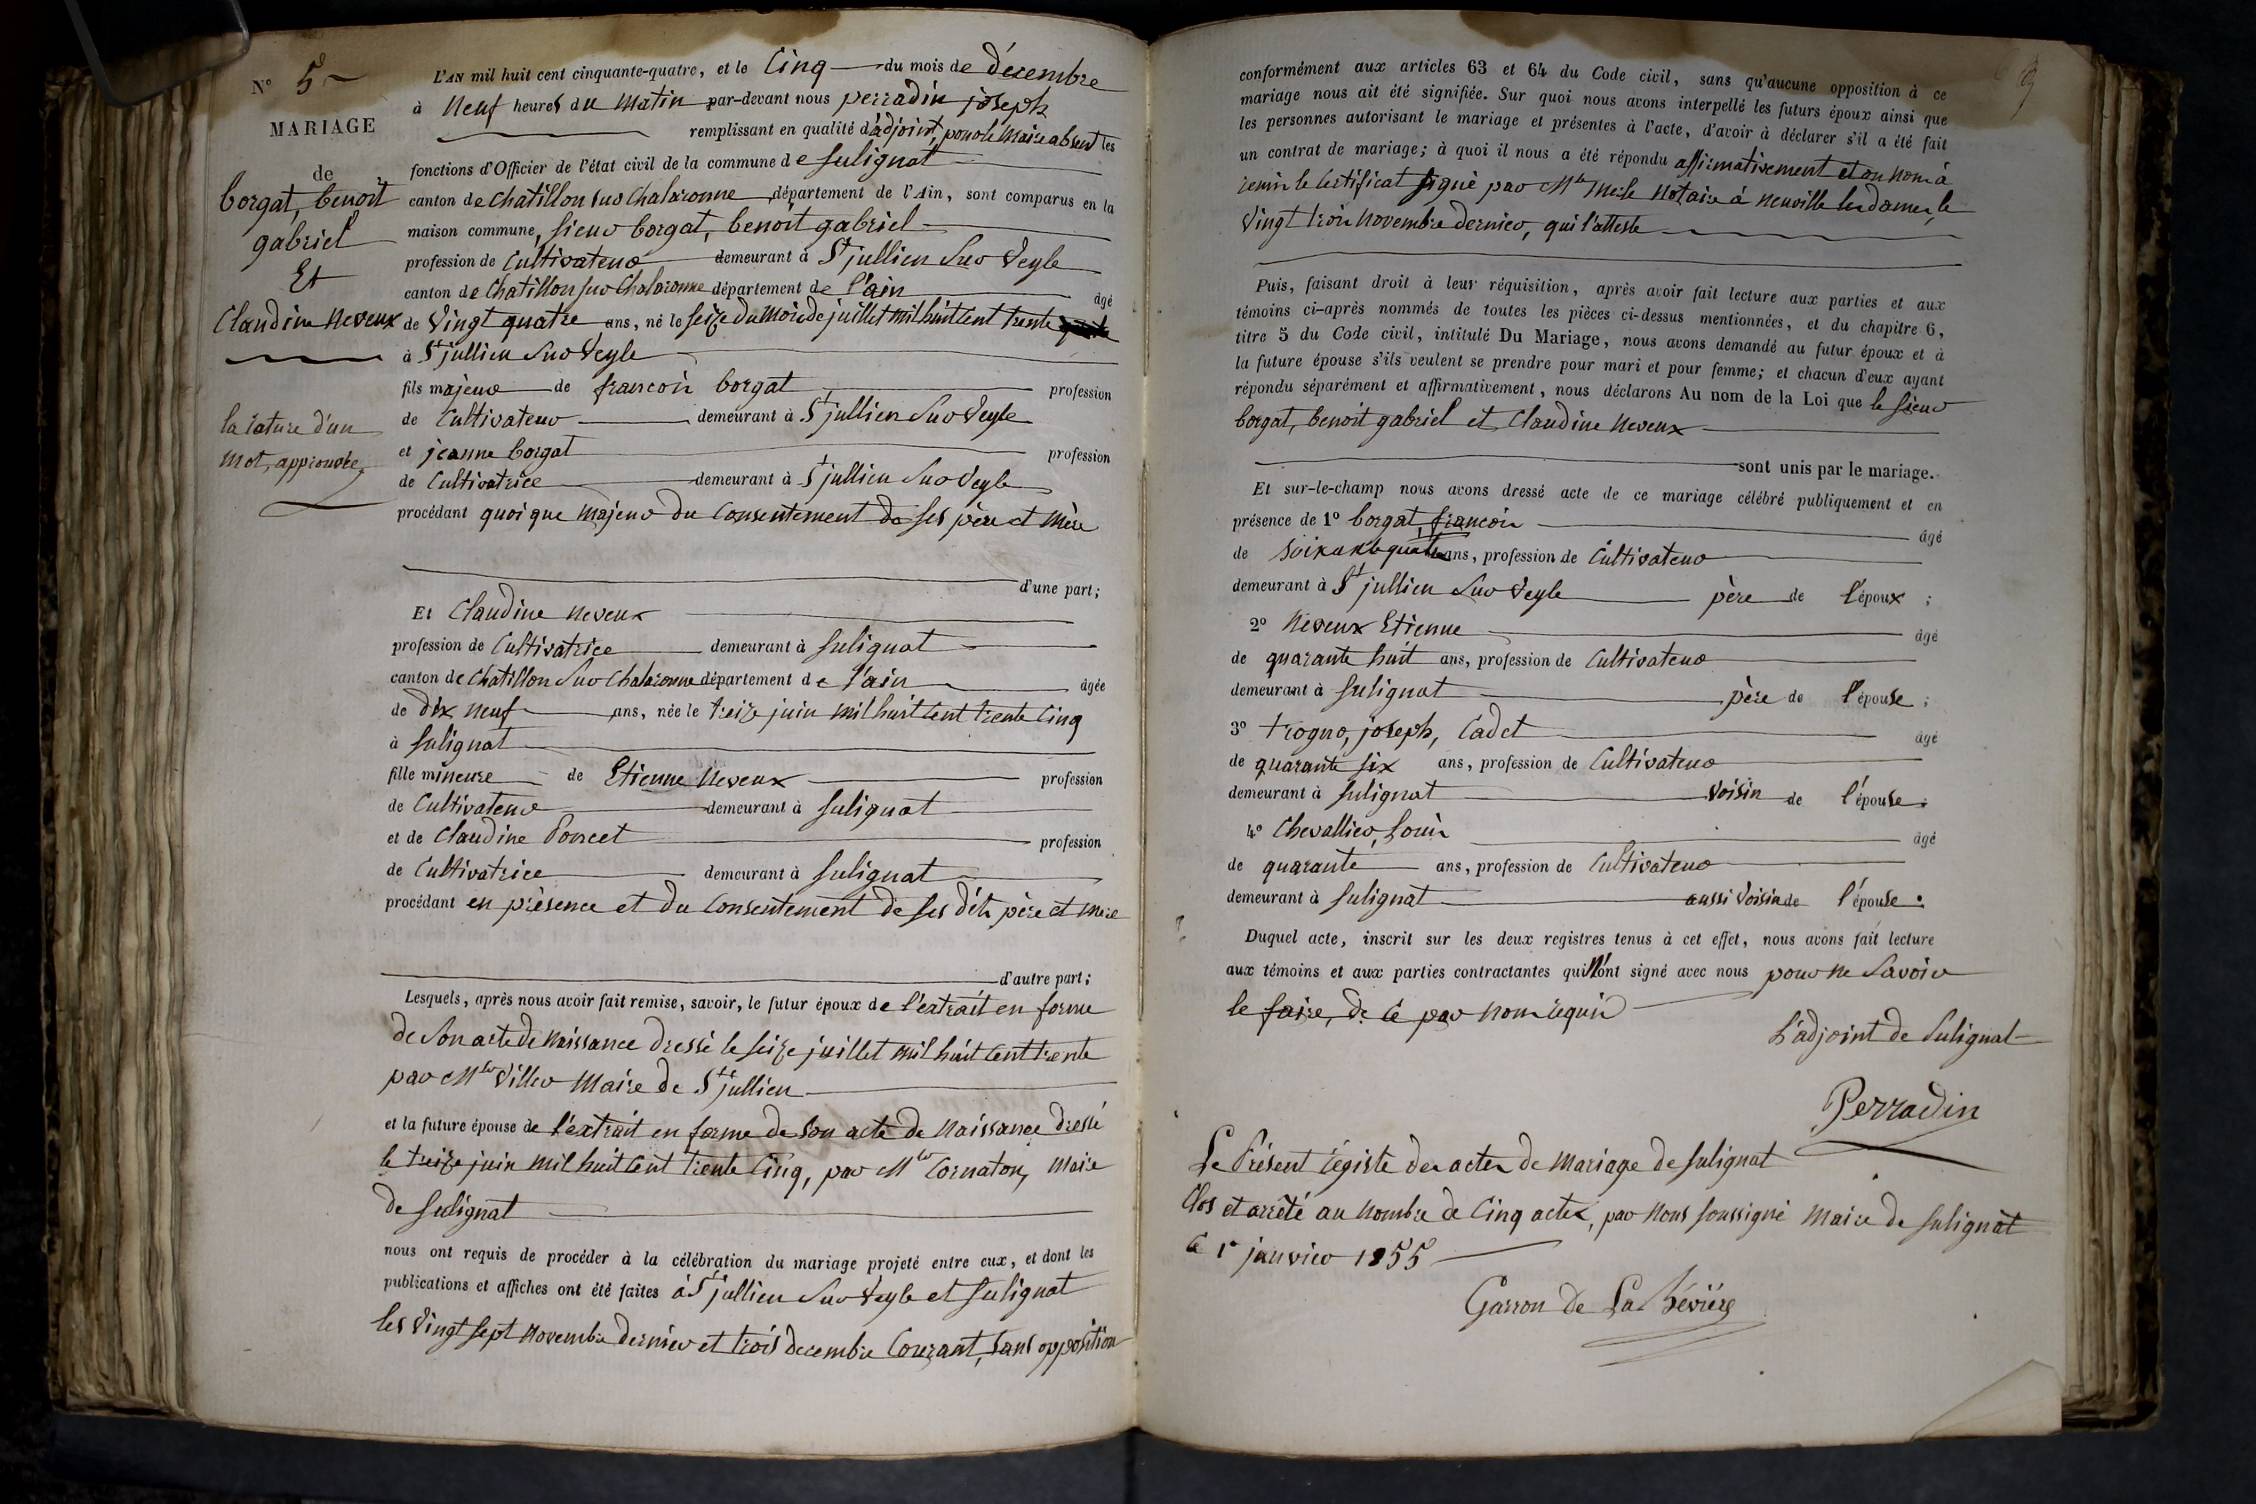 N° 5
MARIAGE
de
borgat, benoit
gabriel
Et
Claudine Neveux
la rature d'un
mot, approuvée,
L'AN mil huit cent cinquante-quatre, et le Cinq du mois de décembre
à Neuf heures du Matin par-devant nous perradin joseph
remplissant en qualité d'adjoint, pour le Maire absent les
fonctions d'Officier de l'état civil de la commune de Sulignat
canton de Chatillon sur Chalaronne département de l'Ain, sont comparus en la
maison commune, sieur borgat, benoit gabriel
profession de Cultivateur demeurant à St jullien Sur Veyle
canton de Chatillon sur Chalaronne département de l'ain âgé
de Vingt quatre ans, né le seize du Mois de juillet mil huit cent trente
à St jullien Sur Veyle
fils majeur de francois borgat profession
de Cultivateur demeurant à St jullien Sur Veyle
et jeanne borgat profession
de Cultivatrice demeurant à St jullien Sur Veyle
procédant quoique majeur du Consentement de ses père et Mère
d'une part;
Et Claudine Neveux
profession de Cultivatrice demeurant à Sulignat
canton de Chatillon Sur Chalaronne département de l'ain âgée
de dix neuf ans, née le treize juin mil huit cent trente Cinq
à Sulignat
fille mineure de Etienne Neveux profession
de Cultivateur demeurant à Sulignat
et de Claudine Poncet profession
de Cultivatrice demeurant à Sulignat
procédant en présence et du Consentement de ses dits père et mère
d'autre part;
Lesquels, après nous avoir fait remise, savoir, le futur époux de l'extrait en forme
de Son acte de Naissance dressé le seize juillet mil huit cent trente
par Mr Maire de St jullien
et la future épouse de l'extrait en forme de Son acte de Naissance dressé
le treize juin mil huit Cent trente Cinq, par Mr Cornaton, Maire
de Sulignat
nous ont requis de procéder à la célébration du mariage projeté entre eux, et dont les
publications et affiches ont été faites à St jullien Sur Veyle et Sulignat
les Vingt sept Novembre dernier et trois decembre Courant, sans opposition
conformément aux articles 63 et 64 du Code civil, sans qu'aucune opposition à ce
mariage nous ait été signifiée. Sur quoi nous avons interpellé les futurs époux ainsi que
les personnes autorisant le mariage et présentes à l'acte, d'avoir à déclarer s'il a été fait
un contrat de mariage; à quoi il nous a été répondu affirmativement et on nous à
remis le Certificat signé par Me Merle Notaire à Neuville les dames, le
Vingt trois Novembre dernier, qui l'atteste
Puis, faisant droit à leur réquisition, après avoir fait lecture aux parties et aux
témoins ci-après nommés de toutes les pièces ci-dessus mentionnées, et du chapitre 6,
titre 5 du Code civil, intitulé Du Mariage, nous avons demandé au futur époux et à
la future épouse s'ils veulent se prendre pour mari et pour femme; et chacun d'eux ayant
répondu séparément et affirmativement, nous déclarons Au nom de la Loi que le sieur
borgat, benoit gabriel et Claudine Neveux
sont unis par le mariage.
Et sur-le-champ nous avons dressé acte de ce mariage célébré publiquement et en
présence de 1° borgat, francois âgé
de soixante quatre ans, profession de Cultivateur
demeurant à St jullien Sur Veyle père de l'époux;
2° Neveux Etienne âgé
de quarante huit ans, profession de Cultivateur
demeurant à Sulignat père de l'épouse;
3° trogno, joseph, Cadet âgé
de quarante six ans, profession de Cultivateur
demeurant à Sulignat voisin de l'épouse;
4° Chevallier, Louis âgé
de quarante ans, profession de Cultivateur
demeurant à Sulignat aussi voisin de l'épouse.
Duquel acte, inscrit sur les deux registres tenus à cet effet, nous avons fait lecture
aux témoins et aux parties contractantes qui N'ont signé avec nous pour ne Savoir
le faire, de ce par nous requis
L'adjoint de Sulignat
Perradin
Le Présent régiste des actes de Mariage de Sulignat
Clos et arrêté au Nombre de Cinq actes, par Nous soussigné Maire de Sulignat
le 1r janvier 1855
Garron de La Bévière